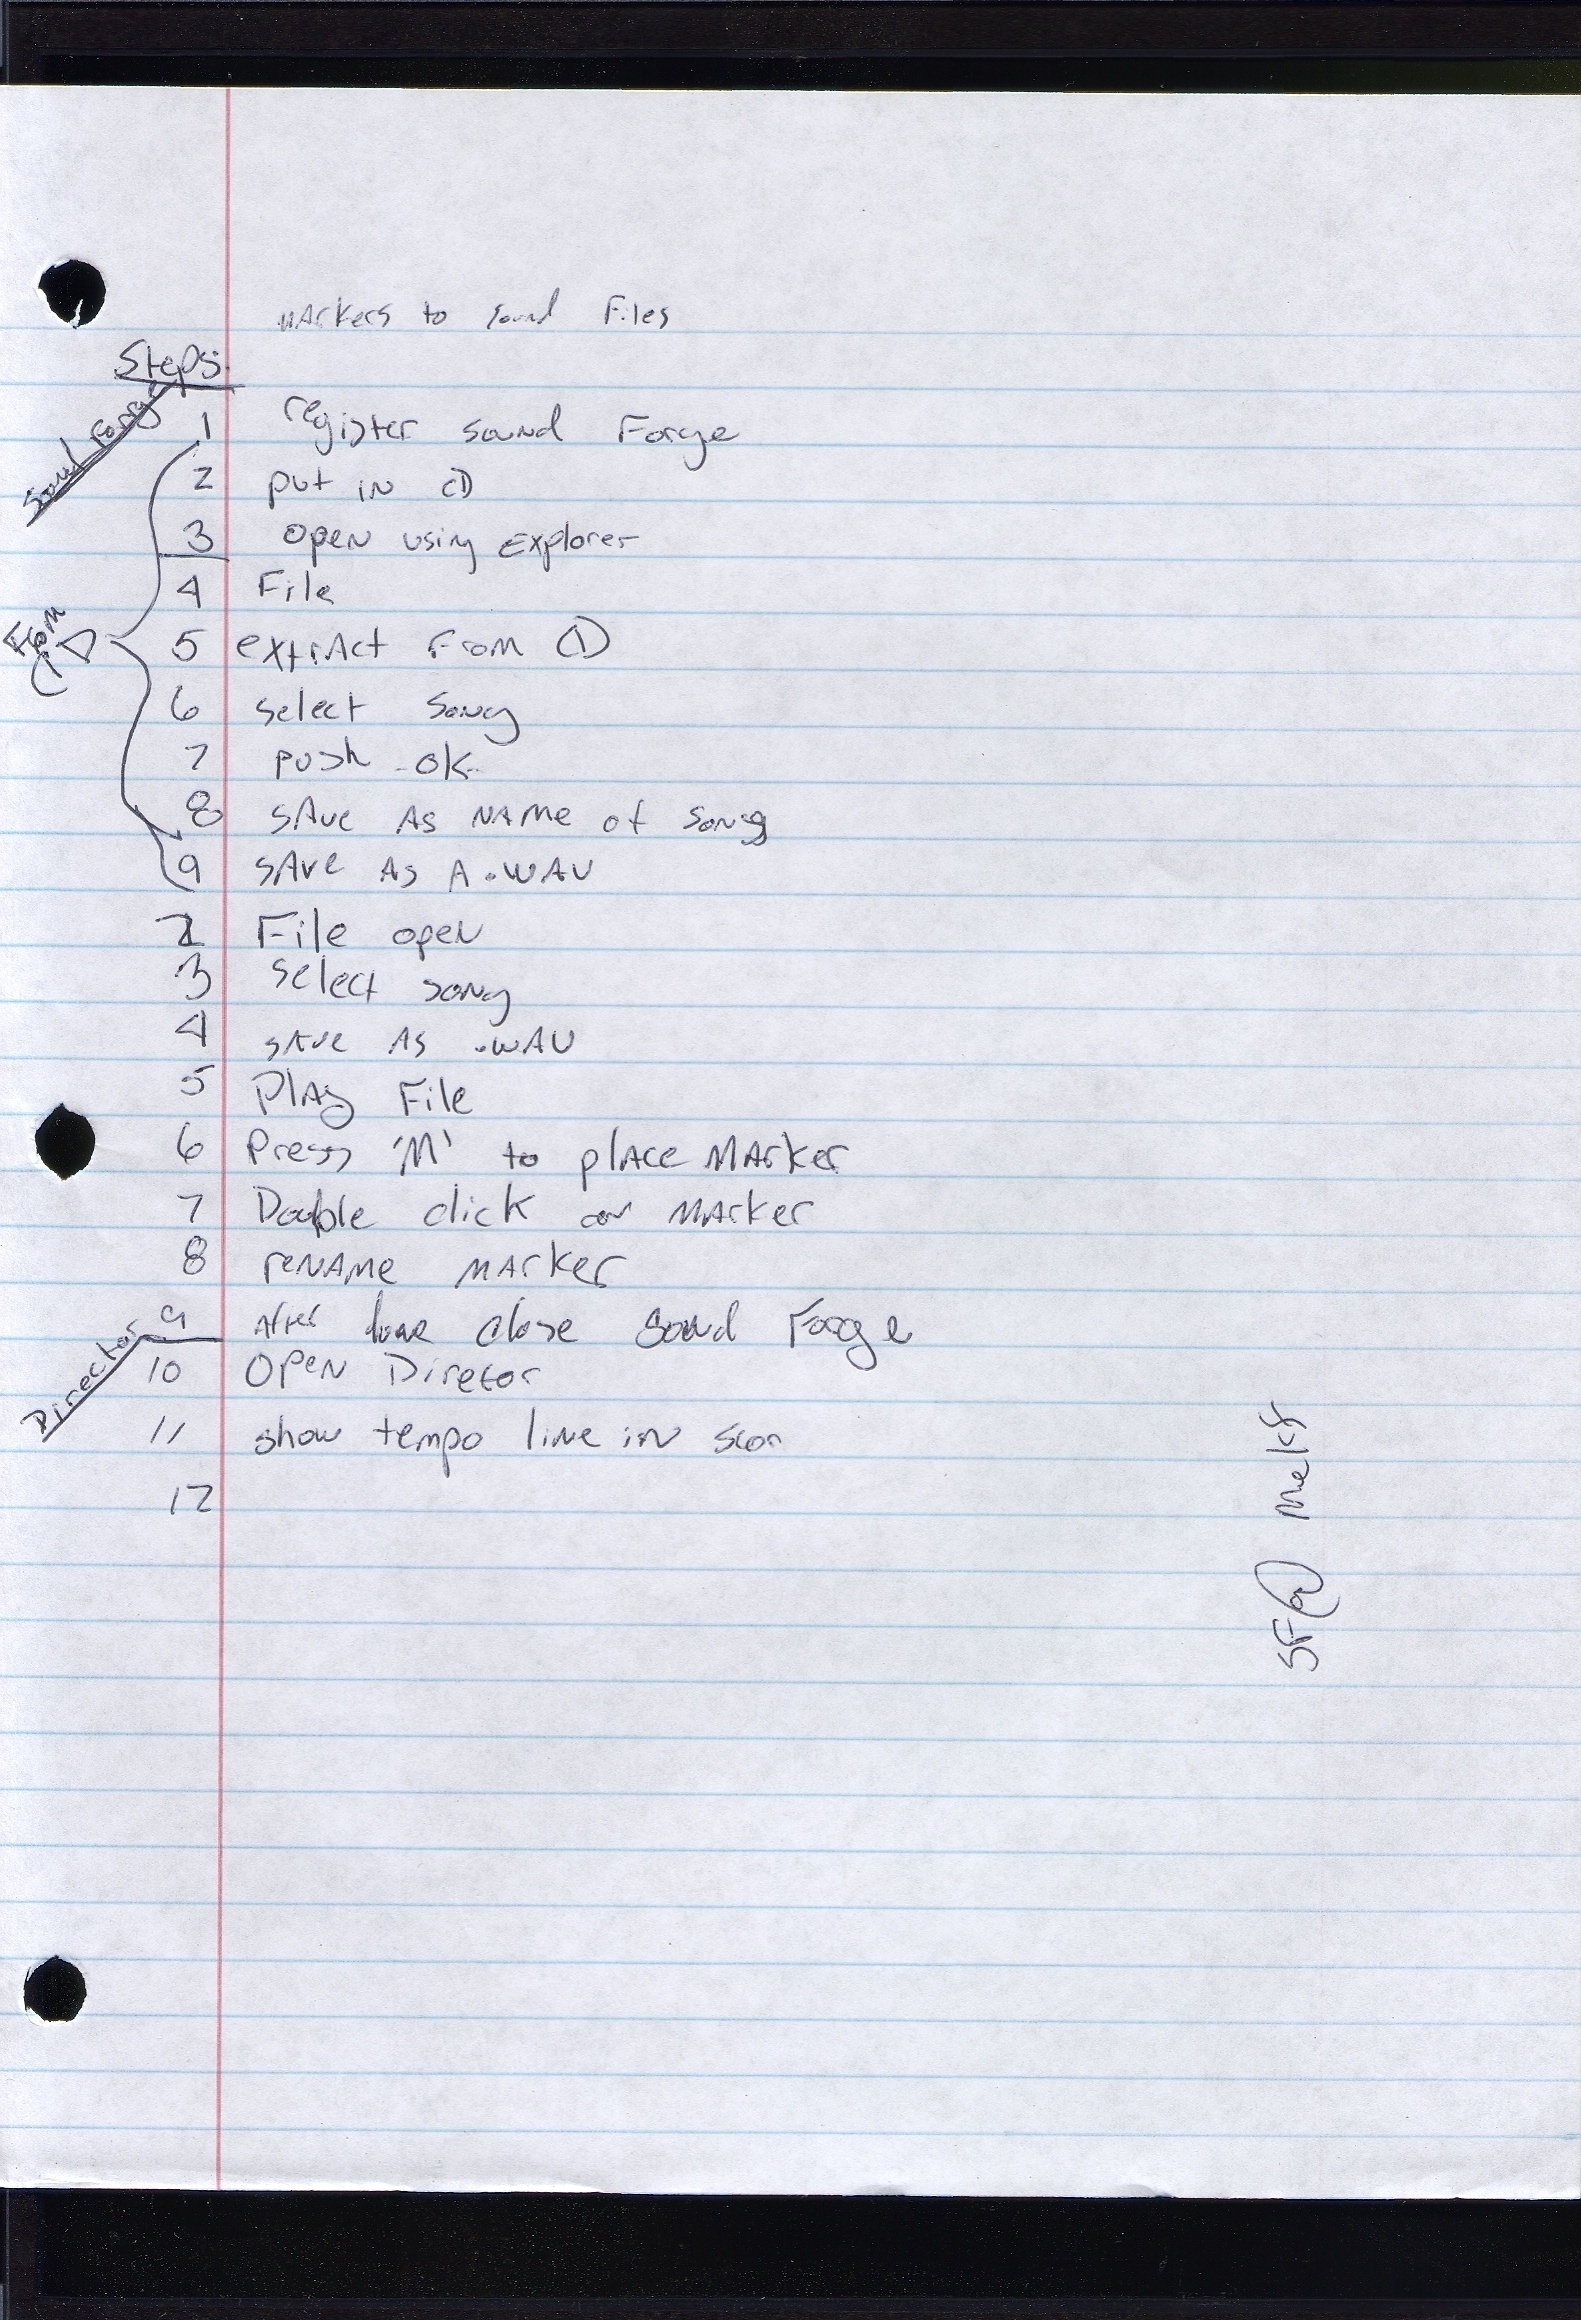 Markers to sound Files
Steps:
Sound Forge
1 register sound Forge
2 put in CD
3 open using explorer
4 File
From CD
5 extract From CD
6 select song
7 push OK
8 save as name of song
9 save as a .wav
2 File open
3 select song
4 save as .wav
5 Play File
6 Press 'M' to place Marker
7 Double click on Marker
8 rename marker
9 After done close Sound Forge
Director
10 Open Diretor
11 show tempo line in
12
SF@